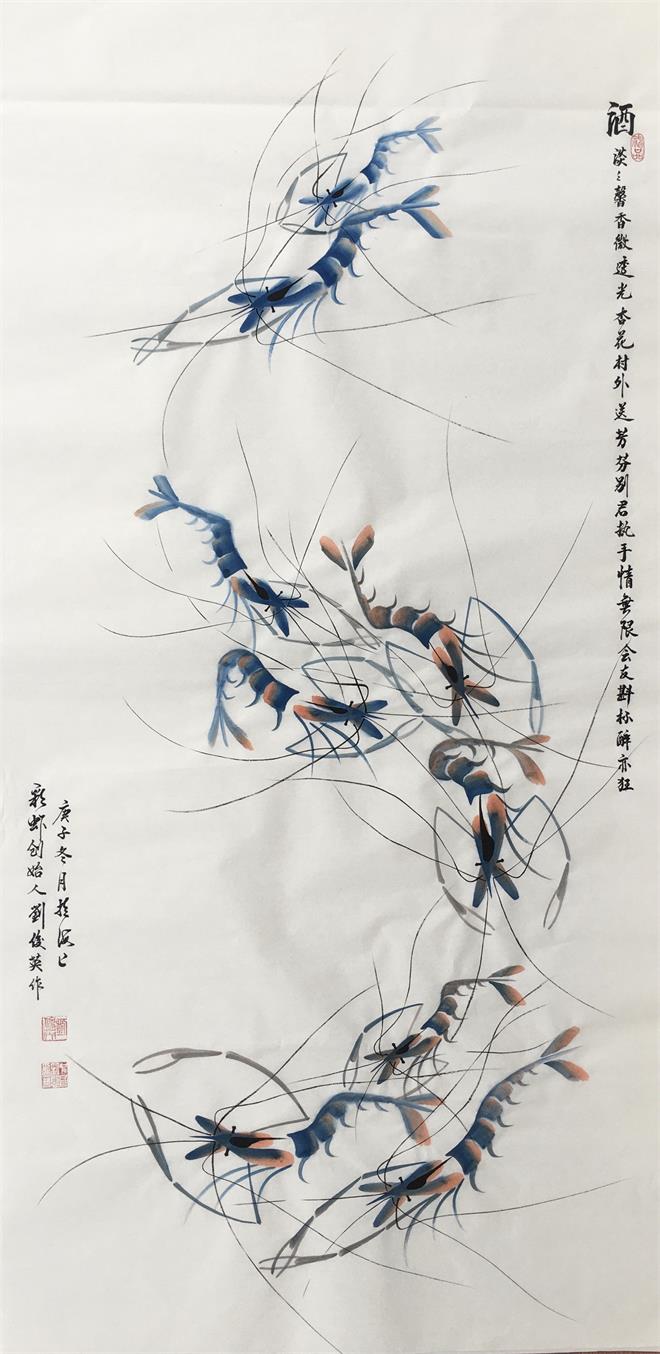 酒
淡々馨香微透光杏花村外送芳芬别君执手情無限会友斟杯醉亦狂
庚子冬月於海上
彩虾创始人劉俊英作